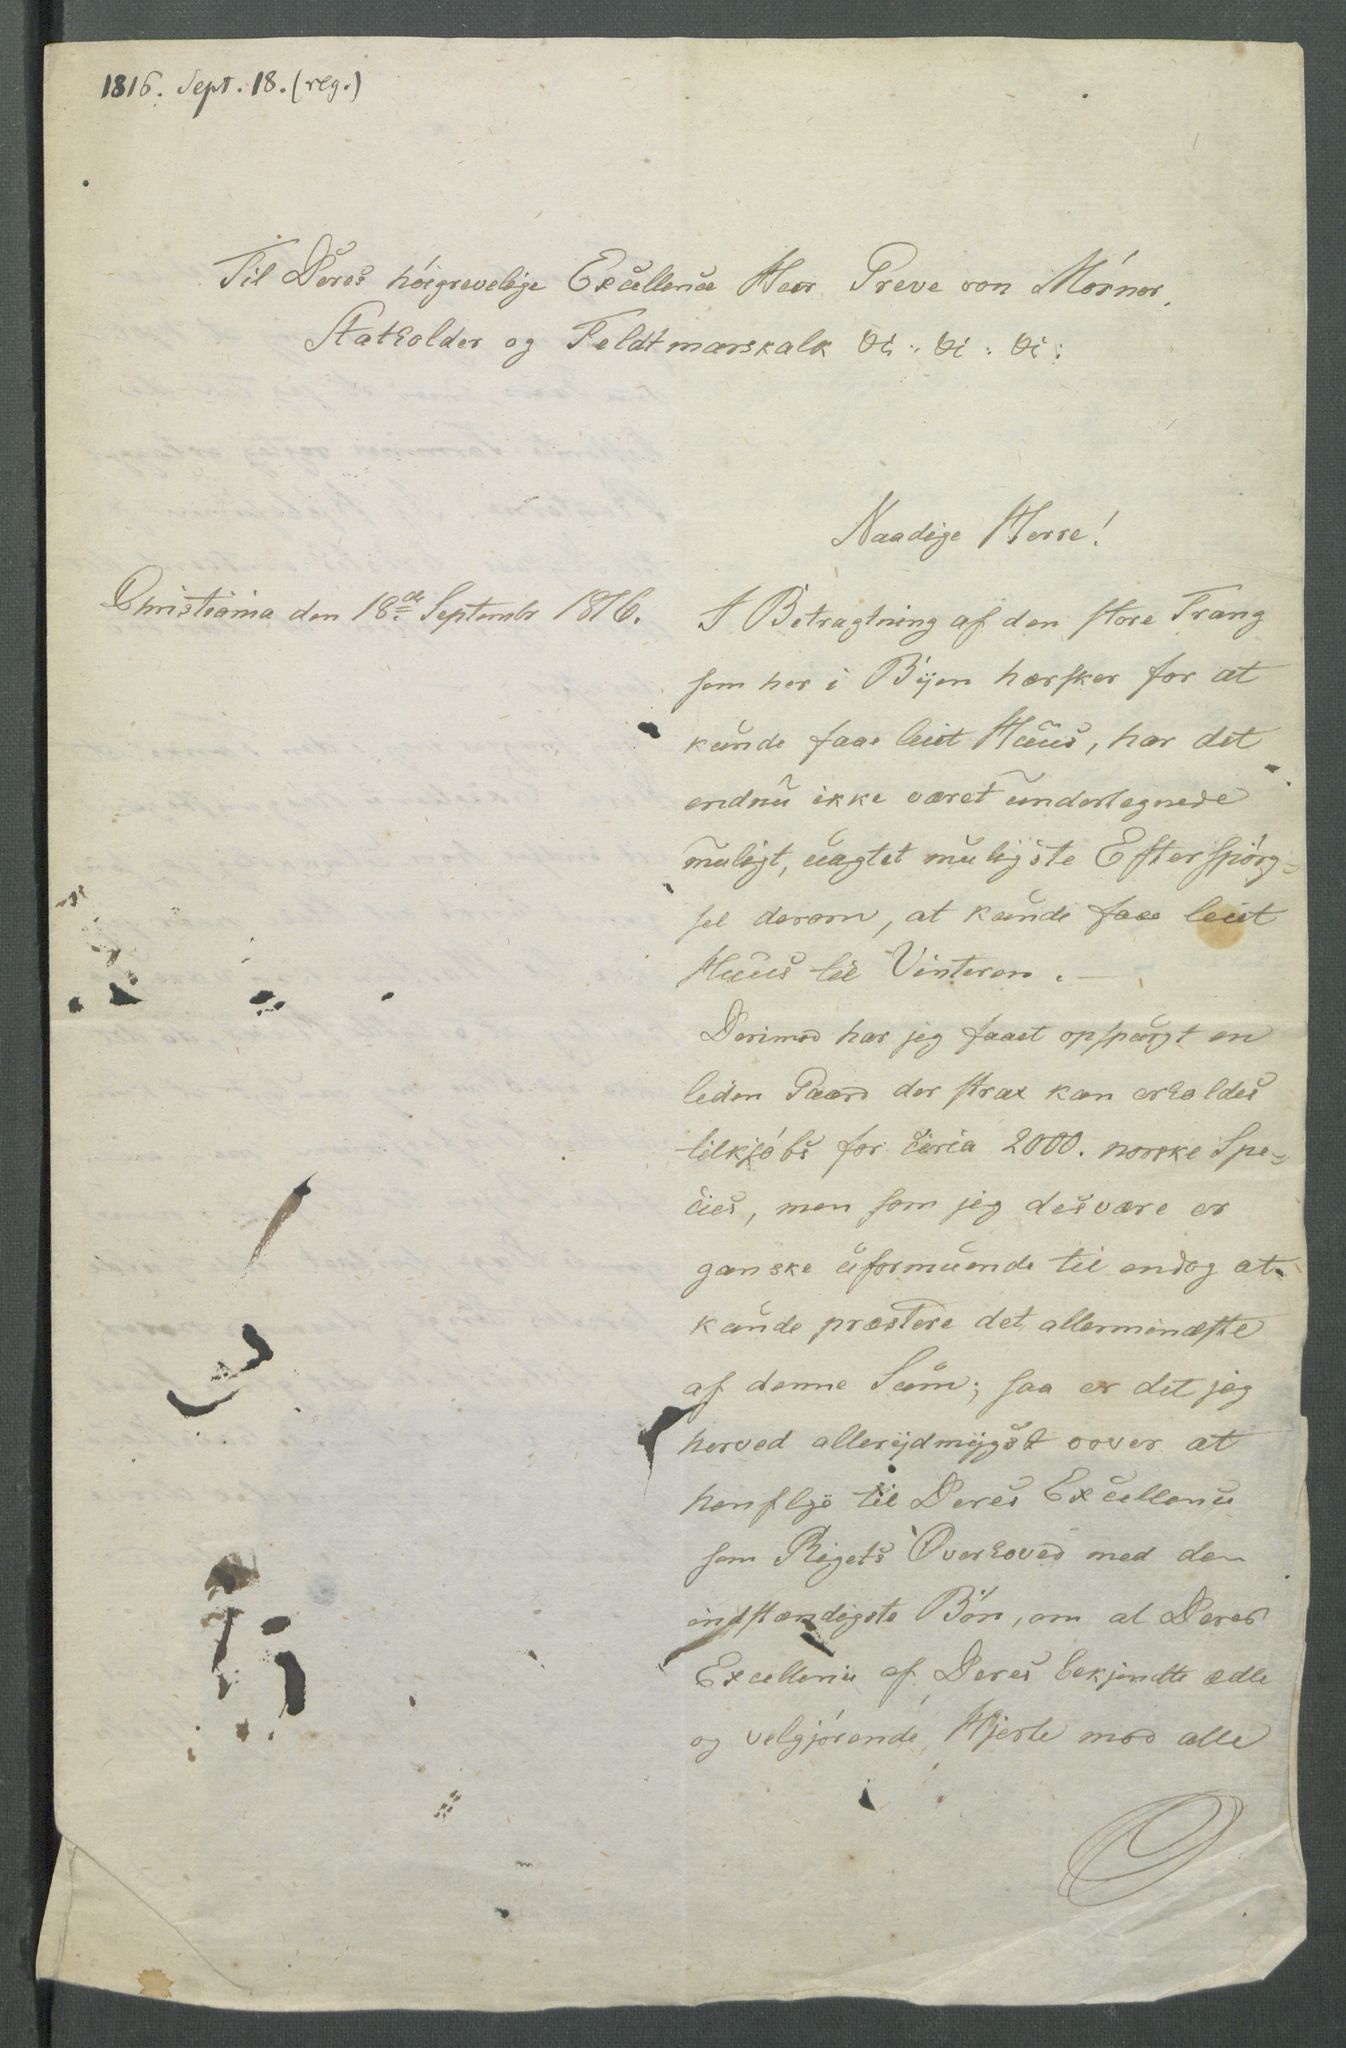 1816. Sept. 18. (reg.)
Til Deres höigrevelige Excellence Herr Greve von Mörner,
Statholder og Feldtmarskalk &: &: &:
Naadige Herre!
Christiania den 18de September 1816.
I Betragtning af den store Trang
som her i Byen hersker for at
kunde faae leiet Huus, har det
endnu ikke været undertegnede
muligt, uagtet muligste Efterspörg-
sel derom, at kunde faae leiet
Huus til Vinteren. —
Derimod har jeg faaet opspurgt en
liden Gaard der strax kan erholdes
tilkjöbs for circa 2000. norske Spe-
cies, men som jeg desvære er
ganske uformuende til endog at
kunde præstere det allermindste
af denne Sum; saa er det jeg
herved allerydmygst vover at
henflye til Deres Excellence
som Rigets Overhoved med den
indstændigste Bön, om at Deres
Excellence af Deres bekjendte ædle
og velgjörende Hjerte mod alle